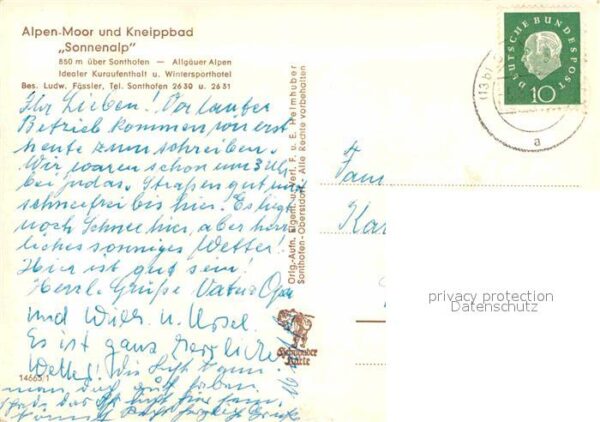 Alpen-Moor und Kneippbad
„Sonnenalp"
850 m über Sonthofen — Allgäuer Alpen
Idealer Kuraufenthalt u. Wintersporthotel
Bes. Ludw. Fässler, Tel. Sonthofen 2630 u. 2631
Ihr Lieben! Vor lauter
Betrieb kommen wir erst
heute zum schreiben.
Wir waren schon um 3 Uhr
bei Judas. Straßen gut und
schneefrei bis hier. Es liegt
noch Schnee hier, aber herr
liches sonniges Wetter!
Hier ist gut sein!
Herzl. Grüße Vater Opa
und Wilh. u. Ursel.
Es ist ganz herrliches
Wetter! Die Luft
man
14665/1
Orig.-Aufn. Eigent. u. Verl. F. u. E. Heimhuber
Sonthofen-Oberstdorf - Alle Rechte vorbehalten
Heimhuber
Karte
DEUTSCHE BUNDESPOST
10
(13b)
a
Fam
Kar
privacy protection
Datenschutz